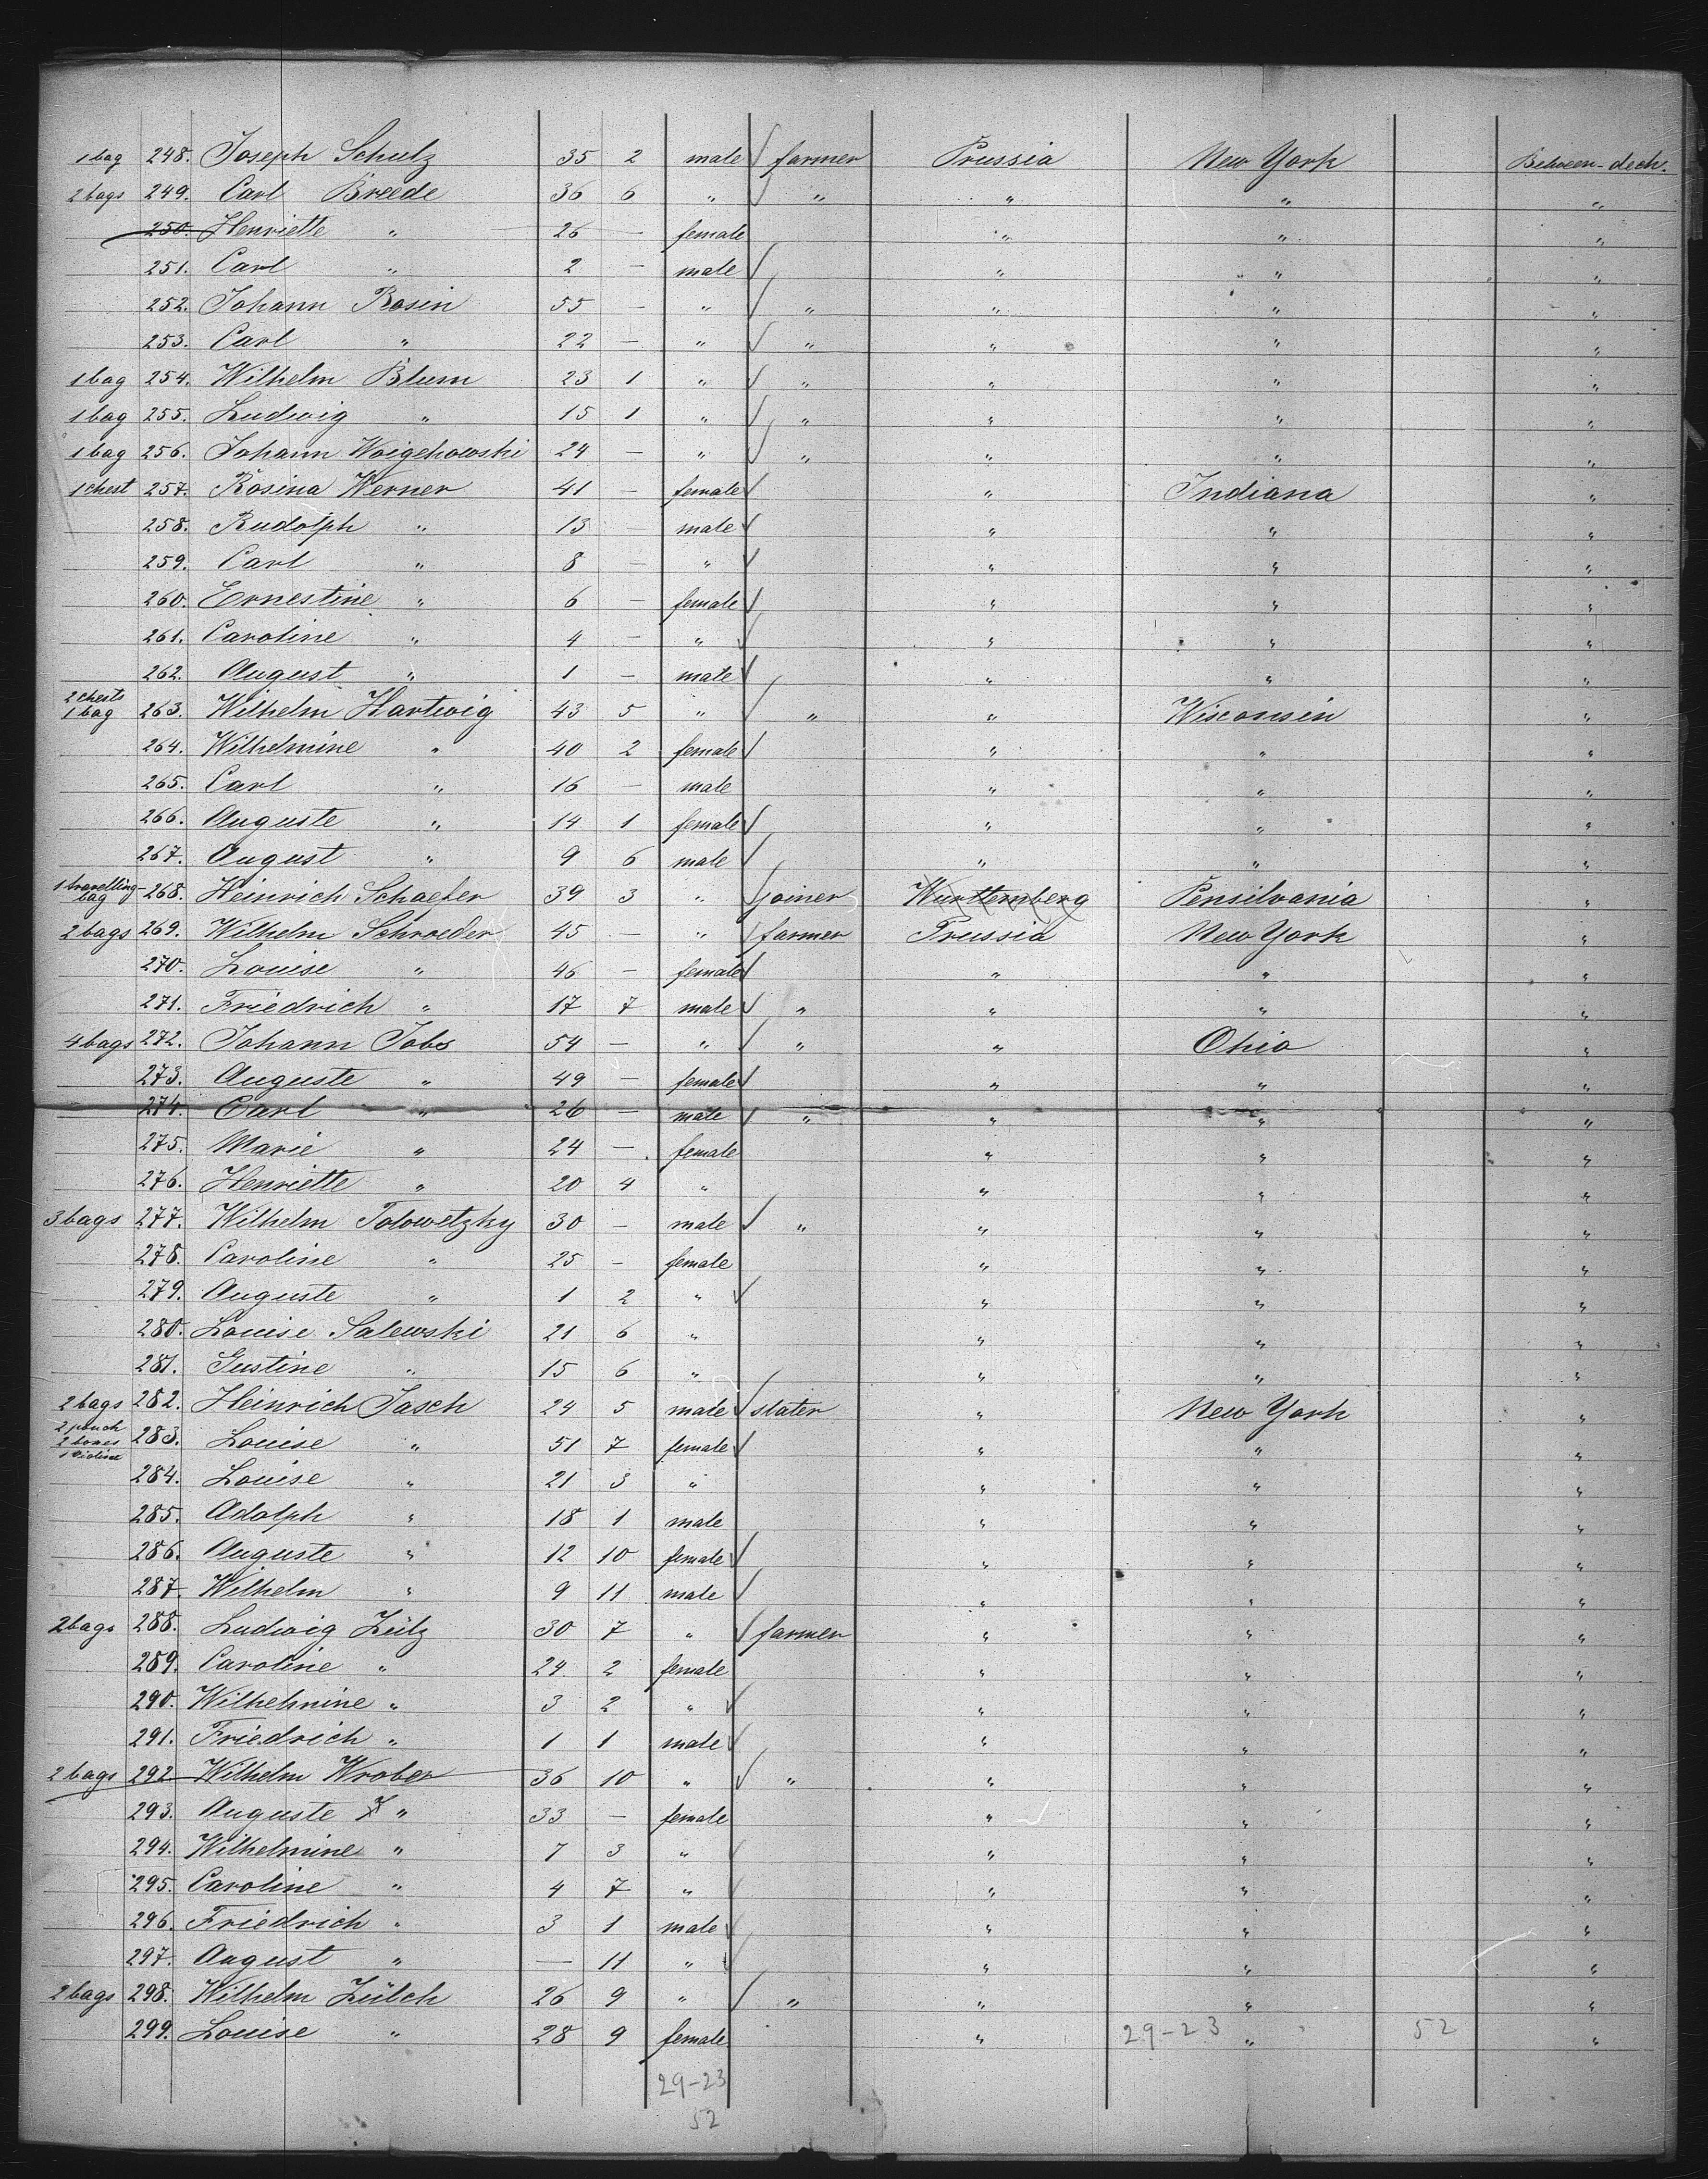 1 bag 248. Joseph Schulz 35 2 male farmer Prussia New York Between-deck.
2 bags 249. Carl Breede 36 6 " " " " "
250. Henriette " 26 — female " " "
251. Carl " 2 — male " " "
252. Johann Rosin 55 — " " " " "
253. Carl " 22 — " " " " "
1 bag 254. Wilhelm Blum 23 1 " " " " "
1 bag 255. Ludwig " 15 1 " " " " "
1 bag 256. Johann Woigehowski 24 — " " " " "
1 chest 257. Rosina Werner 41 — female " Indiana "
258. Rudolph " 13 — male " " "
259. Carl " 8 — " " " "
260. Ernestine " 6 — female " " "
261. Caroline " 4 — " " " "
262. August " 1 — male " " "
2 chests
1 bag 263. Wilhelm Hartwig 43 5 " " " Wisconsin "
264. Wilhelmine " 40 2 female " " "
265. Carl " 16 — male " " "
266. Auguste " 14 1 female " " "
267. August " 9 6 male " " "
1 travelling-
bag 268. Heinrich Schaefer 39 3 " joiner Wurttemberg Pensilvania "
2 bags 269. Wilhelm Schroeder 45 — " farmer Prussia New York "
270. Louise " 46 — female " " "
271. Friedrich " 17 7 male " " " "
4 bags 272. Johann Jobs 54 — " " " Ohio "
273. Auguste " 49 — female " " "
274. Carl " 26 — male " " " "
275. Marie " 24 — female " " "
276. Henriette " 20 4 " " " "
3 bags 277. Wilhelm Tolowetzky 30 — male " " " "
278. Caroline " 25 — female " " "
279. Auguste " 1 2 " " " "
280. Louise Salewski 21 6 " " " "
281. Justine " 15 6 " " " "
2 bags 282. Heinrich Jasch 24 5 male slater " New York "
2 pouch
2 boxes
1 violine 283. Louise " 51 7 female " " "
284. Louise " 21 3 " " " "
285. Adolph " 18 1 male " " "
286. Auguste " 12 10 female " " "
287. Wilhelm " 9 11 male " " "
2 bags 288. Ludwig Zülz 30 7 " farmer " " "
289. Caroline " 24 2 female " " "
290. Wilhelmine " 3 2 " " " "
291. Friedrich " 1 1 male " " "
2 bags 292. Wilhelm Wrober 36 10 " " " " "
293. Auguste " 33 — female " " "
294. Wilhelmine " 7 3 " " " "
295. Caroline " 4 7 " " " "
296. Friedrich " 3 1 male " " "
297. August " — 11 " " " "
2 bags 298. Wilhelm Zülch 26 9 " " " " "
299. Louise " 28 9 female " 29-23 " 52 "
29-23
52